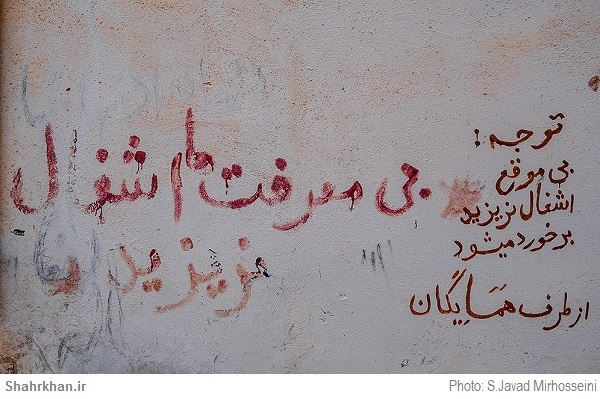 توجه:
بی موقع
اشغال نریزید
برخورد میشود
از طرف همایگان
بی معرفت ها اشغل
نریزید
Shahrkhan.ir
Photo: S.Javad Mirhosseini